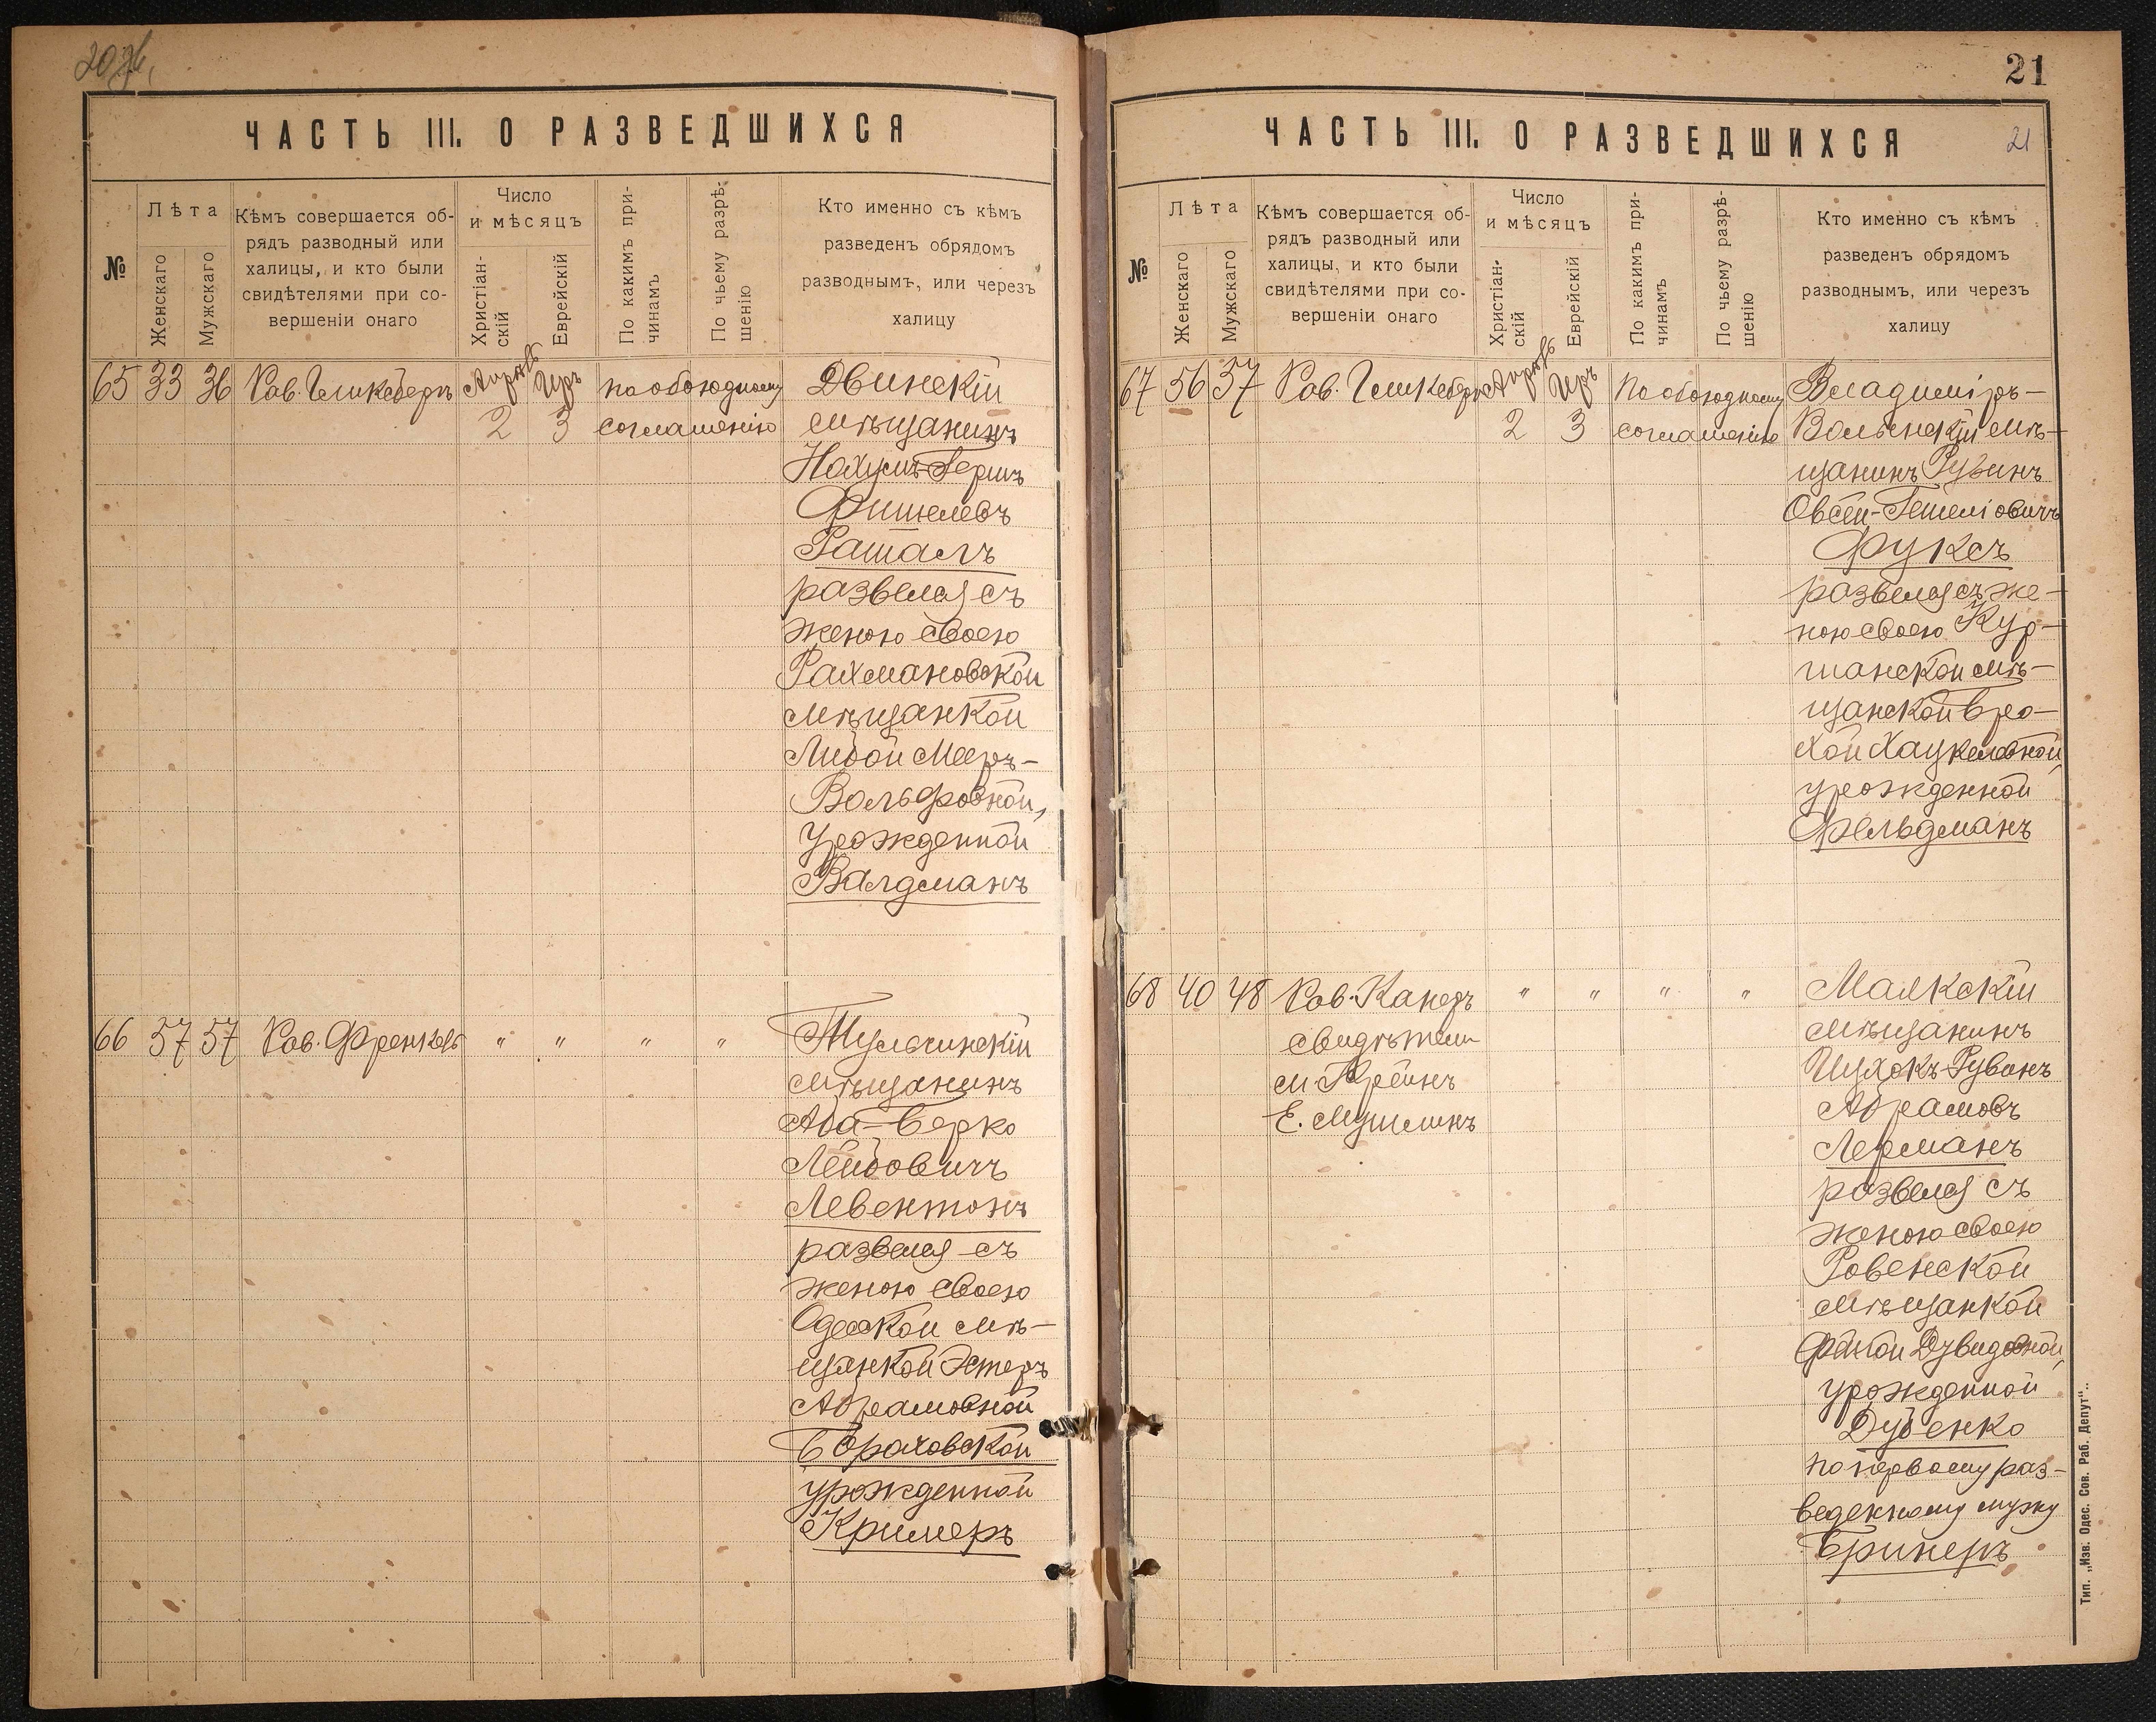 ЧАСТЬ III. О РАЗВЕДШИХСЯ
№
Лѣта
Женскаго
Мужскаго
Кѣмъ совершается об-
рядъ разводный или
халицы, и кто были
свидѣтелями при со-
вершеніи онаго
Число
и мѣсяцъ
Христіан-
скій
Еврейскій
По какимъ при-
чинамъ
По чьему разрѣ-
шенію
Кто именно съ кѣмъ
разведенъ обрядомъ
разводнымъ, или черезъ
халицу
65 33 36 Рав. Апрѣль Иръ по обоюдному Двинскій
2 3 соглашенію мѣщанинъ
Нохумъ-Герш
Фишелевъ
Рашалъ
развелся съ
женою своею
Рахмановской
мѣщанкой
Либой Мееръ-
Вольфовной,
урожденной
Валдманъ
66 57 57 Рав. Френкель " " " " Тульчинскій
мѣщанинъ
Аба-Берко
Лейбовичъ
Левентонъ
развелся съ
женою своею
Одесской мѣ-
щанкой Эстеръ
Абрамовной
Бороховской
урожденной
Кримеръ
21
ЧАСТЬ III. О РАЗВЕДШИХСЯ
21
№
Лѣта
Женскаго
Мужскаго
Кѣмъ совершается об-
рядъ разводный или
халицы, и кто были
свидѣтелями при со-
вершеніи онаго
Число
и мѣсяцъ
Христіан-
скій
Еврейскій
По какимъ при-
чинамъ
По чьему разрѣ-
шенію
Кто именно съ кѣмъ
разведенъ обрядомъ
разводнымъ, или черезъ
халицу
67 56 57 Рав. Апрѣль Иръ По обоюдному Владиміръ-
2 3 соглашенію Волынскій мѣ-
щанинъ Рувинъ
Овсей-Гешелiовичъ
Фуксъ
развелся съ же-
ною своею Кур-
шанской мѣ-
щанской Бро-
хой Хацкелевной,
урожденной
Фельдманъ
68 40 48 Рав. Канеръ " " " " Маякскій
свидѣтели мѣщанинъ
М. Крейнъ Ицхокъ-Рувинъ
Е. Мушлинъ Абрамовъ
Лерманъ
развелся съ
женою своею
Ровенской
мѣщанкой
Фаней Дувидовной,
урожденной
Дубенко
по первому раз-
веденному мужу
Бринеръ
Тип. „Изв. Одес. Сов. Раб. Депут“..